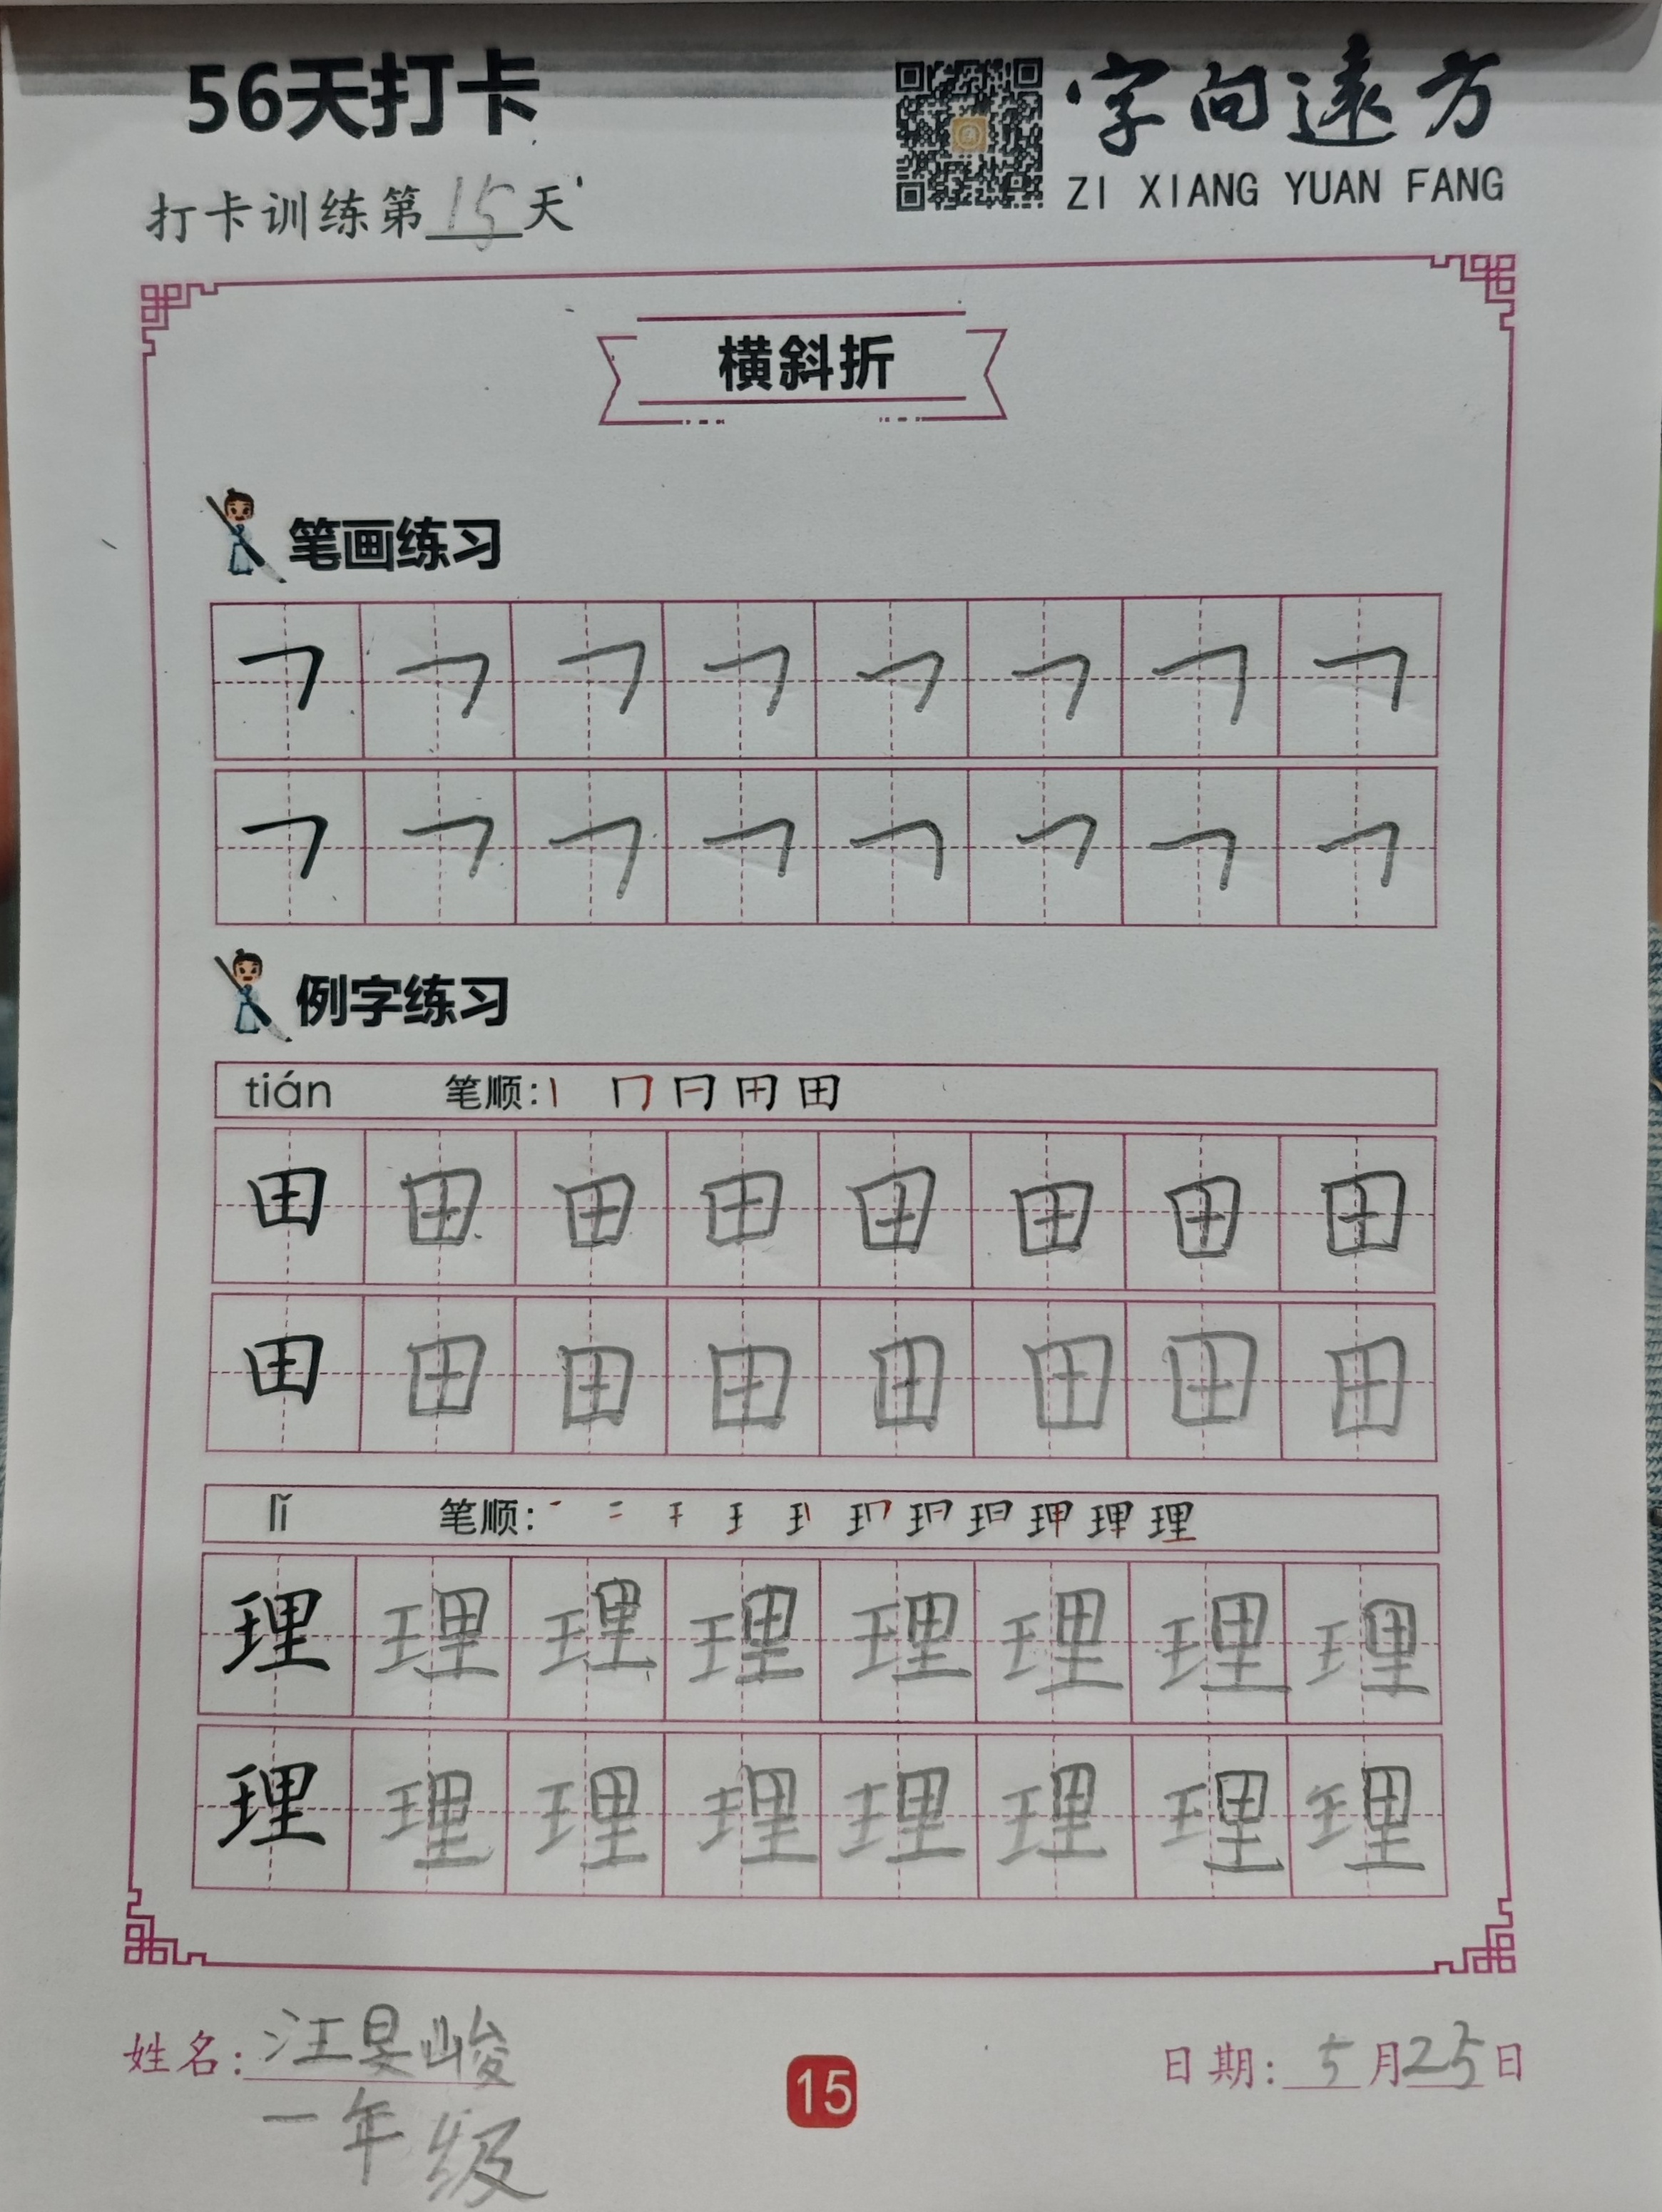 56天打卡
字向遠方
ZI XIANG YUAN FANG
打卡训练第15天
横斜折
笔画练习
例字练习
tián 笔顺: 丨 冂 日 田 田
田 田 田 田 田 田 田 田
田 田 田 田 田 田 田 田
lǐ 笔顺:
理 理 理 理 理 理 理 理
理 理 理 理 理 理 理 理
姓名: 汪昊峻
一年级
15
日期: 5月25日